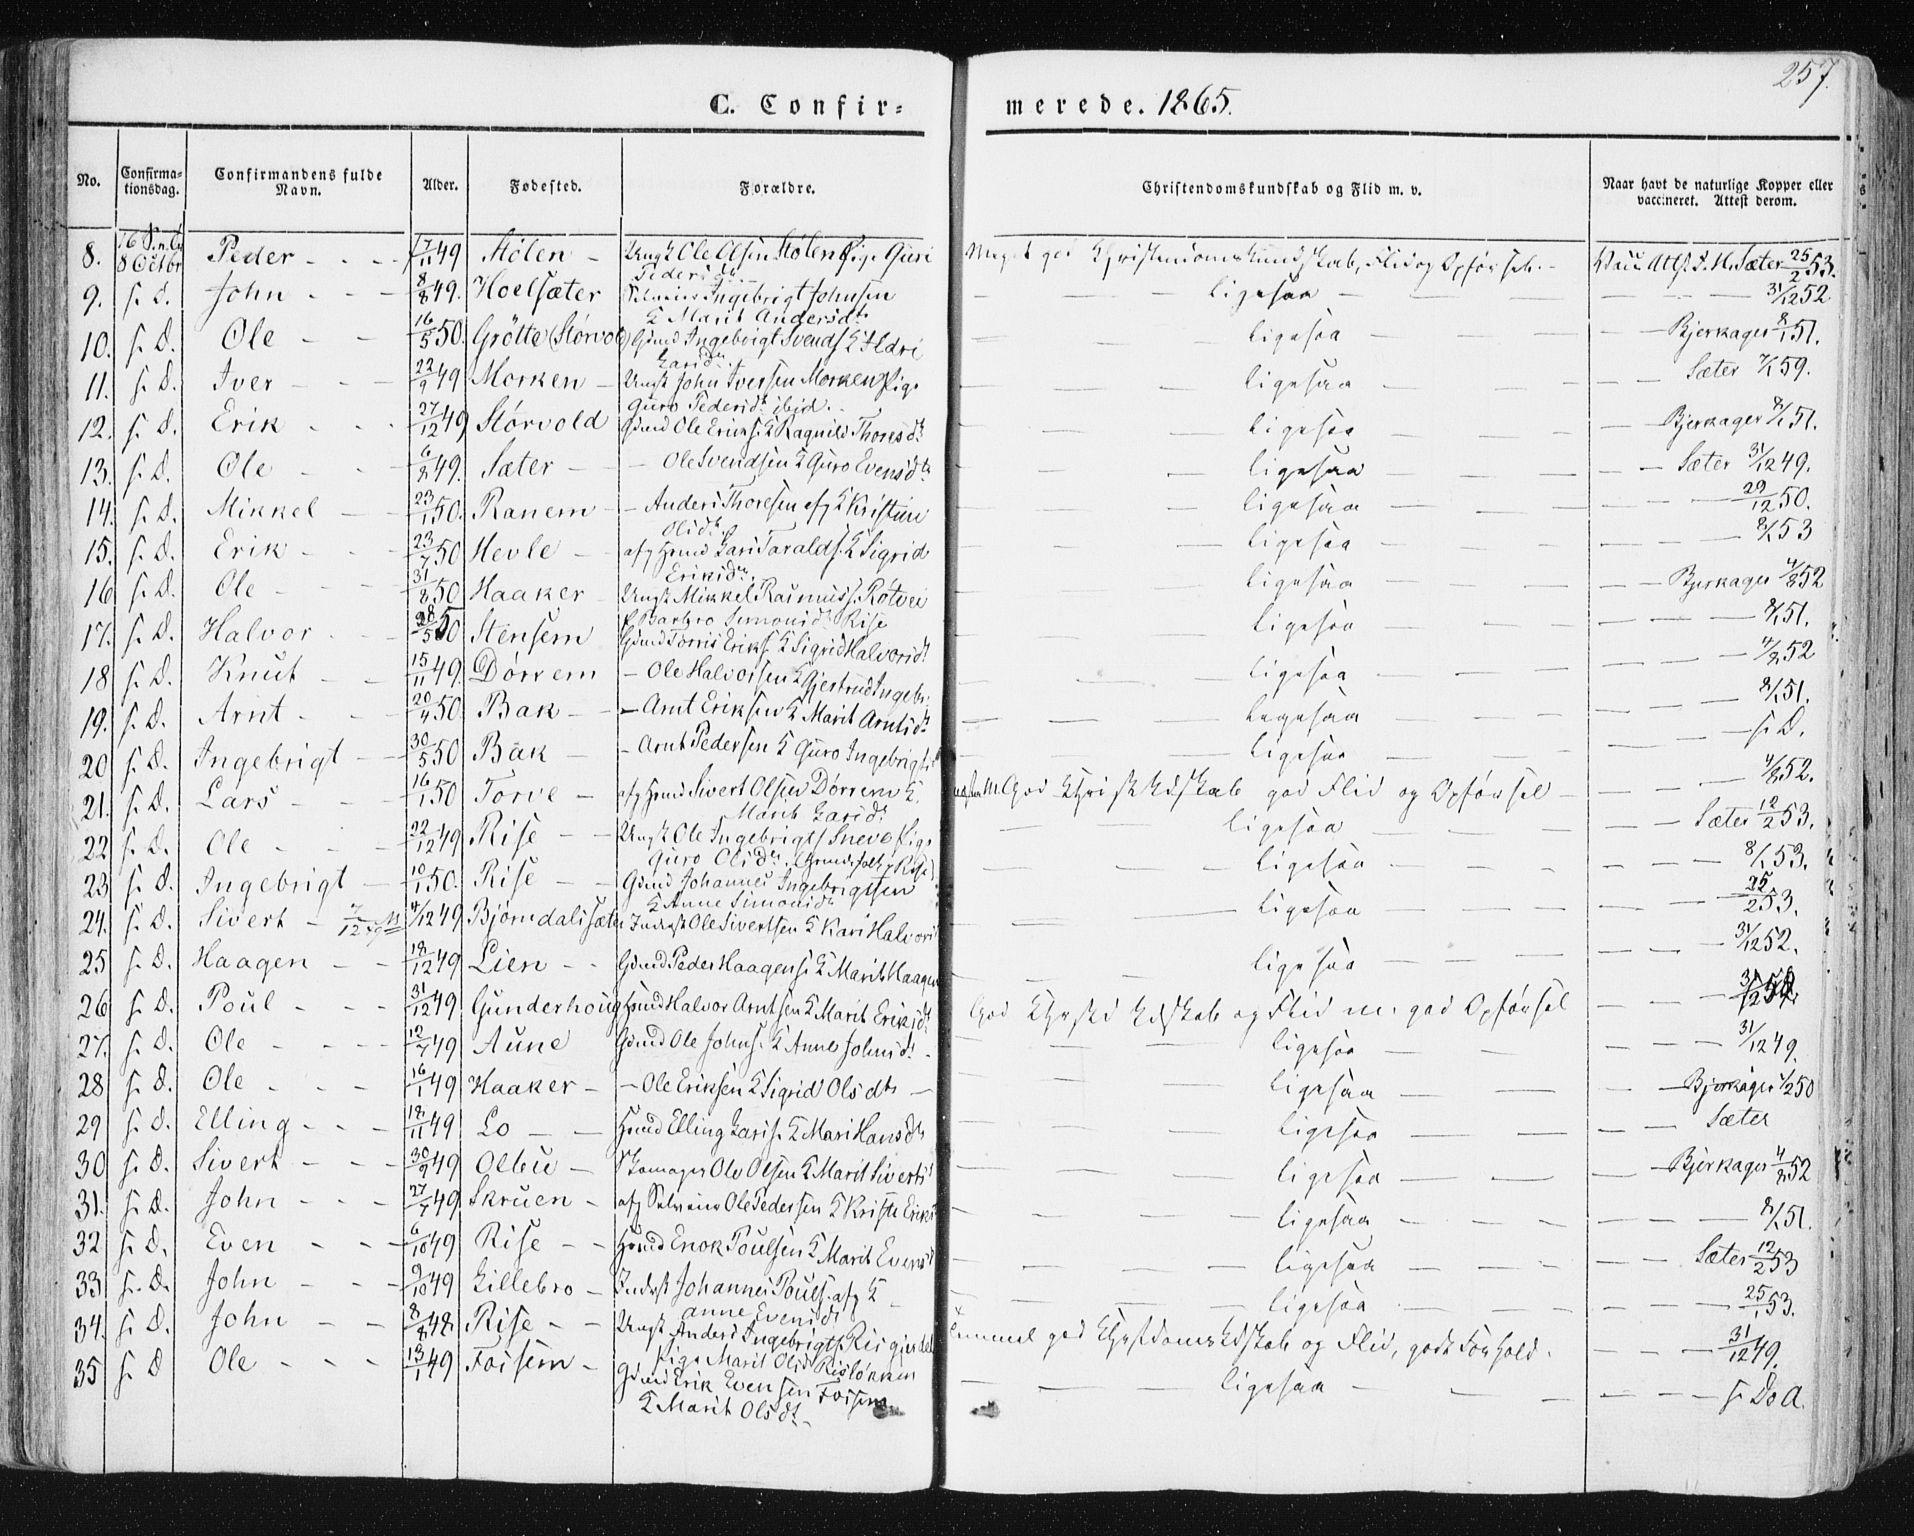 257.
C. Confirmerede. 1865.
No. Confirmationsdag. Confirmandens fulde Navn. Alder. Fødested. Forældre. Christendomskundskab og Flid m. v. Naar havt de naturlige Kopper eller vaccineret. Attest derom.
8. 8 Octbr Peder 49 Stølen Ungk Ole Olsen Stølen Pige Guri Pedersdtr Meget god Christendomskundskab, Flid og Opførsel. Sæter 25/2 53.
9. s. D. John 8/8 49. Hoelsæter Ingebrigt Johnsen & Marit Andersdtr ligesaa 31/12 52
10. s. D. Ole 16/5 50. Grötte (Störvold) Gmd Ingebrigt Svends & Ildri ligesaa Bjerkager 8/1 51.
11. s. D. Iver 22/9 49 Morken Ungk John Iversen Morken Pige Guro Pedersdt ibid. ligesaa Sæter 59.
12. s. D. Erik 27/12 49 Störvold Gmd Ole Eriks. & Ragnild Thoresdt ligesaa Bjerkager 8/1 51.
13. s. D. Ole 6/8 49. Sæter Ole Svendsen & Guro Evensdtr ligesaa Sæter 31/12 49.
14. s. D. Mikkel 23/1 50. Ranem Anders Thoresen afg & Kristine Olsdtr ligesaa 29/12 50.
15. s. D. Erik 23/7 50 Hevle afg Gmd Lars Taralds. & Sigrid Eriksdtr. ligesaa 8/1 53
16 s. D. Ole 31/8 50 Haaker Ungk Mikkel Rasmuss. Rotvei P Barbro Simonsdt Rise ligesaa Bjerkager 4/8 52
17. s. D. Halvor 28/5 50 Stensem Gmd Torris Eriks. & Sigrid Halvorsdt ligesaa 8/1 51.
18 s. D. Knut 15/11 49. Dørrem Ole Halvorsen & Gjertrud Ingebr. ligesaa 4/8 52
19. s. D. Arnt 20/4 50. Bak Arnt Eriksen & Marit Arntsdt ligesaa 8/1 51.
20 s. D. Ingebrigt 30/5 50 Bak Arnt Pedersen & Guro Ingebrigts ligesaa s. D.
21. s. D. Lars 16/1 50 Torve afg Gmd Sivert Olsen Dørrem & Marit Larsdt M. God Christ Kdskab god Flid og Opførsel 4/8 52.
22 s. D. Ole 22/12 49 Rise Ungk Ole Ingebrigts Sneve Pige Guro Olsdtr ligesaa Sæter 12/2 53.
23 s. D. Ingebrigt 10/1 50. Rise Gmd Johannes Ingebrigtsen & Anne Simonsdtr ligesaa 8/1 53.
24. s. D. Sivert 4/12 49 Bjørndalssæter Inderst Ole Sivertsen & Kari Halvors ligesaa 25/2 53.
25 s. D. Haagen 18/12 49 Lien Gmd Peder Haagens. & Marit Haagens ligesaa 31/12 52.
26 s. D. Poul 31/12 49 Gunderhoug Gmd Halvor Arntsen & Marit Eriksdt God Christ Kdskab og Flid m. god Opførsel 31/12
27. s. D. Ole 12/7 49 Aune Gmd Ole Johns. & Anne Johnsdt ligesaa 31/12 49.
28 s. D. Ole 16/1 49 Haaker Ole Eriksen & Sigrid Olsdtr ligesaa Bjerkager 50
29 s. D. Elling 18/11 49 Lo Gmd Elling Larss. & Mari Hansdt ligesaa Sæter
30 s. D. Sivert 30/9 49 Olbu Skomager Ole Olsen & Marit Siverts ligesaa Bjerkager 4/8 52
31. s. D. John 27/7 49 Skruen afg Selveier Ole Pedersen & Kristi Eriks ligesaa 8/1 51.
32 s. D. Even 6/10 49 Rise Gmd Enok Poulsen & Marit Evensd ligesaa Sæter 12/2 53
33 s. D. John 9/10 49 Lillebro Inderst Johannes Pouls. afg & Anne Evensdt ligesaa 25/1 53.
34. s. D. John 8/8 48. Rise Ungk Anders Ingebrigts Risgjerdet Pige Marit Olsd Risløkken god Christdomskdskab og Flid, godt Forhold. 31/12 49.
35 s. D Ole 13/1 49 Foisem Gmd Erik Evensen Foisem & Marit Olsdt ligesaa s. D o A.